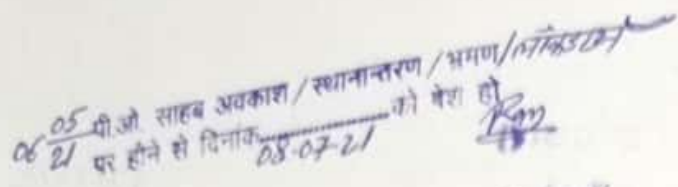 06/05/21 पी.ओ. साहब अवकाश / स्थानान्तरण / भ्रमण / लॉकडाउन
पर होने से दिनांक 08-07-21 को पेश हो